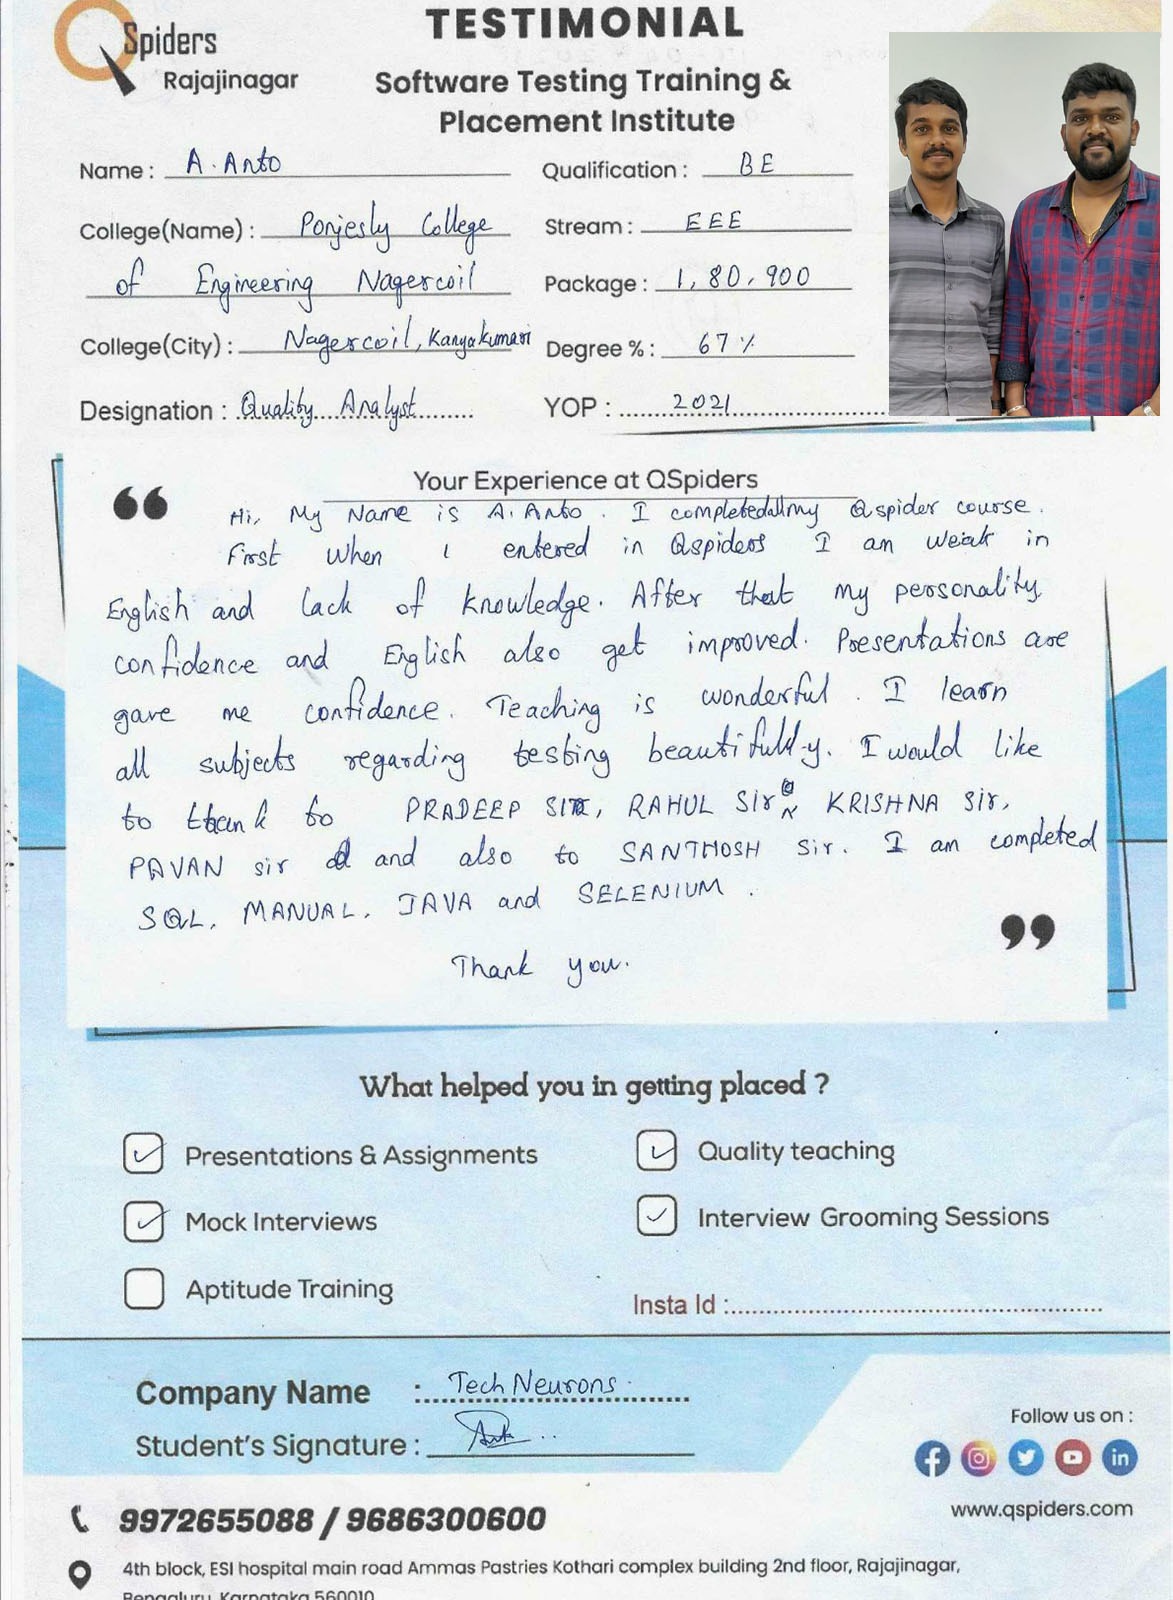 QSpiders
Rajajinagar
TESTIMONIAL
Software Testing Training &
Placement Institute
Name : A. Anto
Qualification : BE
College(Name) : Ponjesly College
of Engineering Nagercoil
Stream : EEE
Package : 1,80,900
College(City) : Nagercoil, Kanyakumari
Degree % : 67 %
Designation : Quality Analyst
YOP : 2021
Your Experience at QSpiders
“ Hi, My Name is A. Anto. I completed all my Qspider course.
First when I entered in Qspiders I am weak in
English and lack of knowledge. After that my personality
confidence and English also get improved. Presentations are
gave me confidence. Teaching is wonderful. I learn
all subjects regarding testing beautifully. I would like
to thank to PRADEEP SIR, RAHUL Sir, KRISHNA Sir,
PAVAN sir and also to SANTHOSH Sir. I am completed
SQL, MANUAL, JAVA and SELENIUM.
Thank you. ”
What helped you in getting placed ?
Presentations & Assignments
Quality teaching
Mock Interviews
Interview Grooming Sessions
Aptitude Training
Insta Id :
Company Name : Tech Neurons.
Student's Signature : Anto
Follow us on :
www.qspiders.com
9972655088 / 9686300600
4th block, ESI hospital main road Ammas Pastries Kothari complex building 2nd floor, Rajajinagar,
Bengaluru, Karnataka 560010